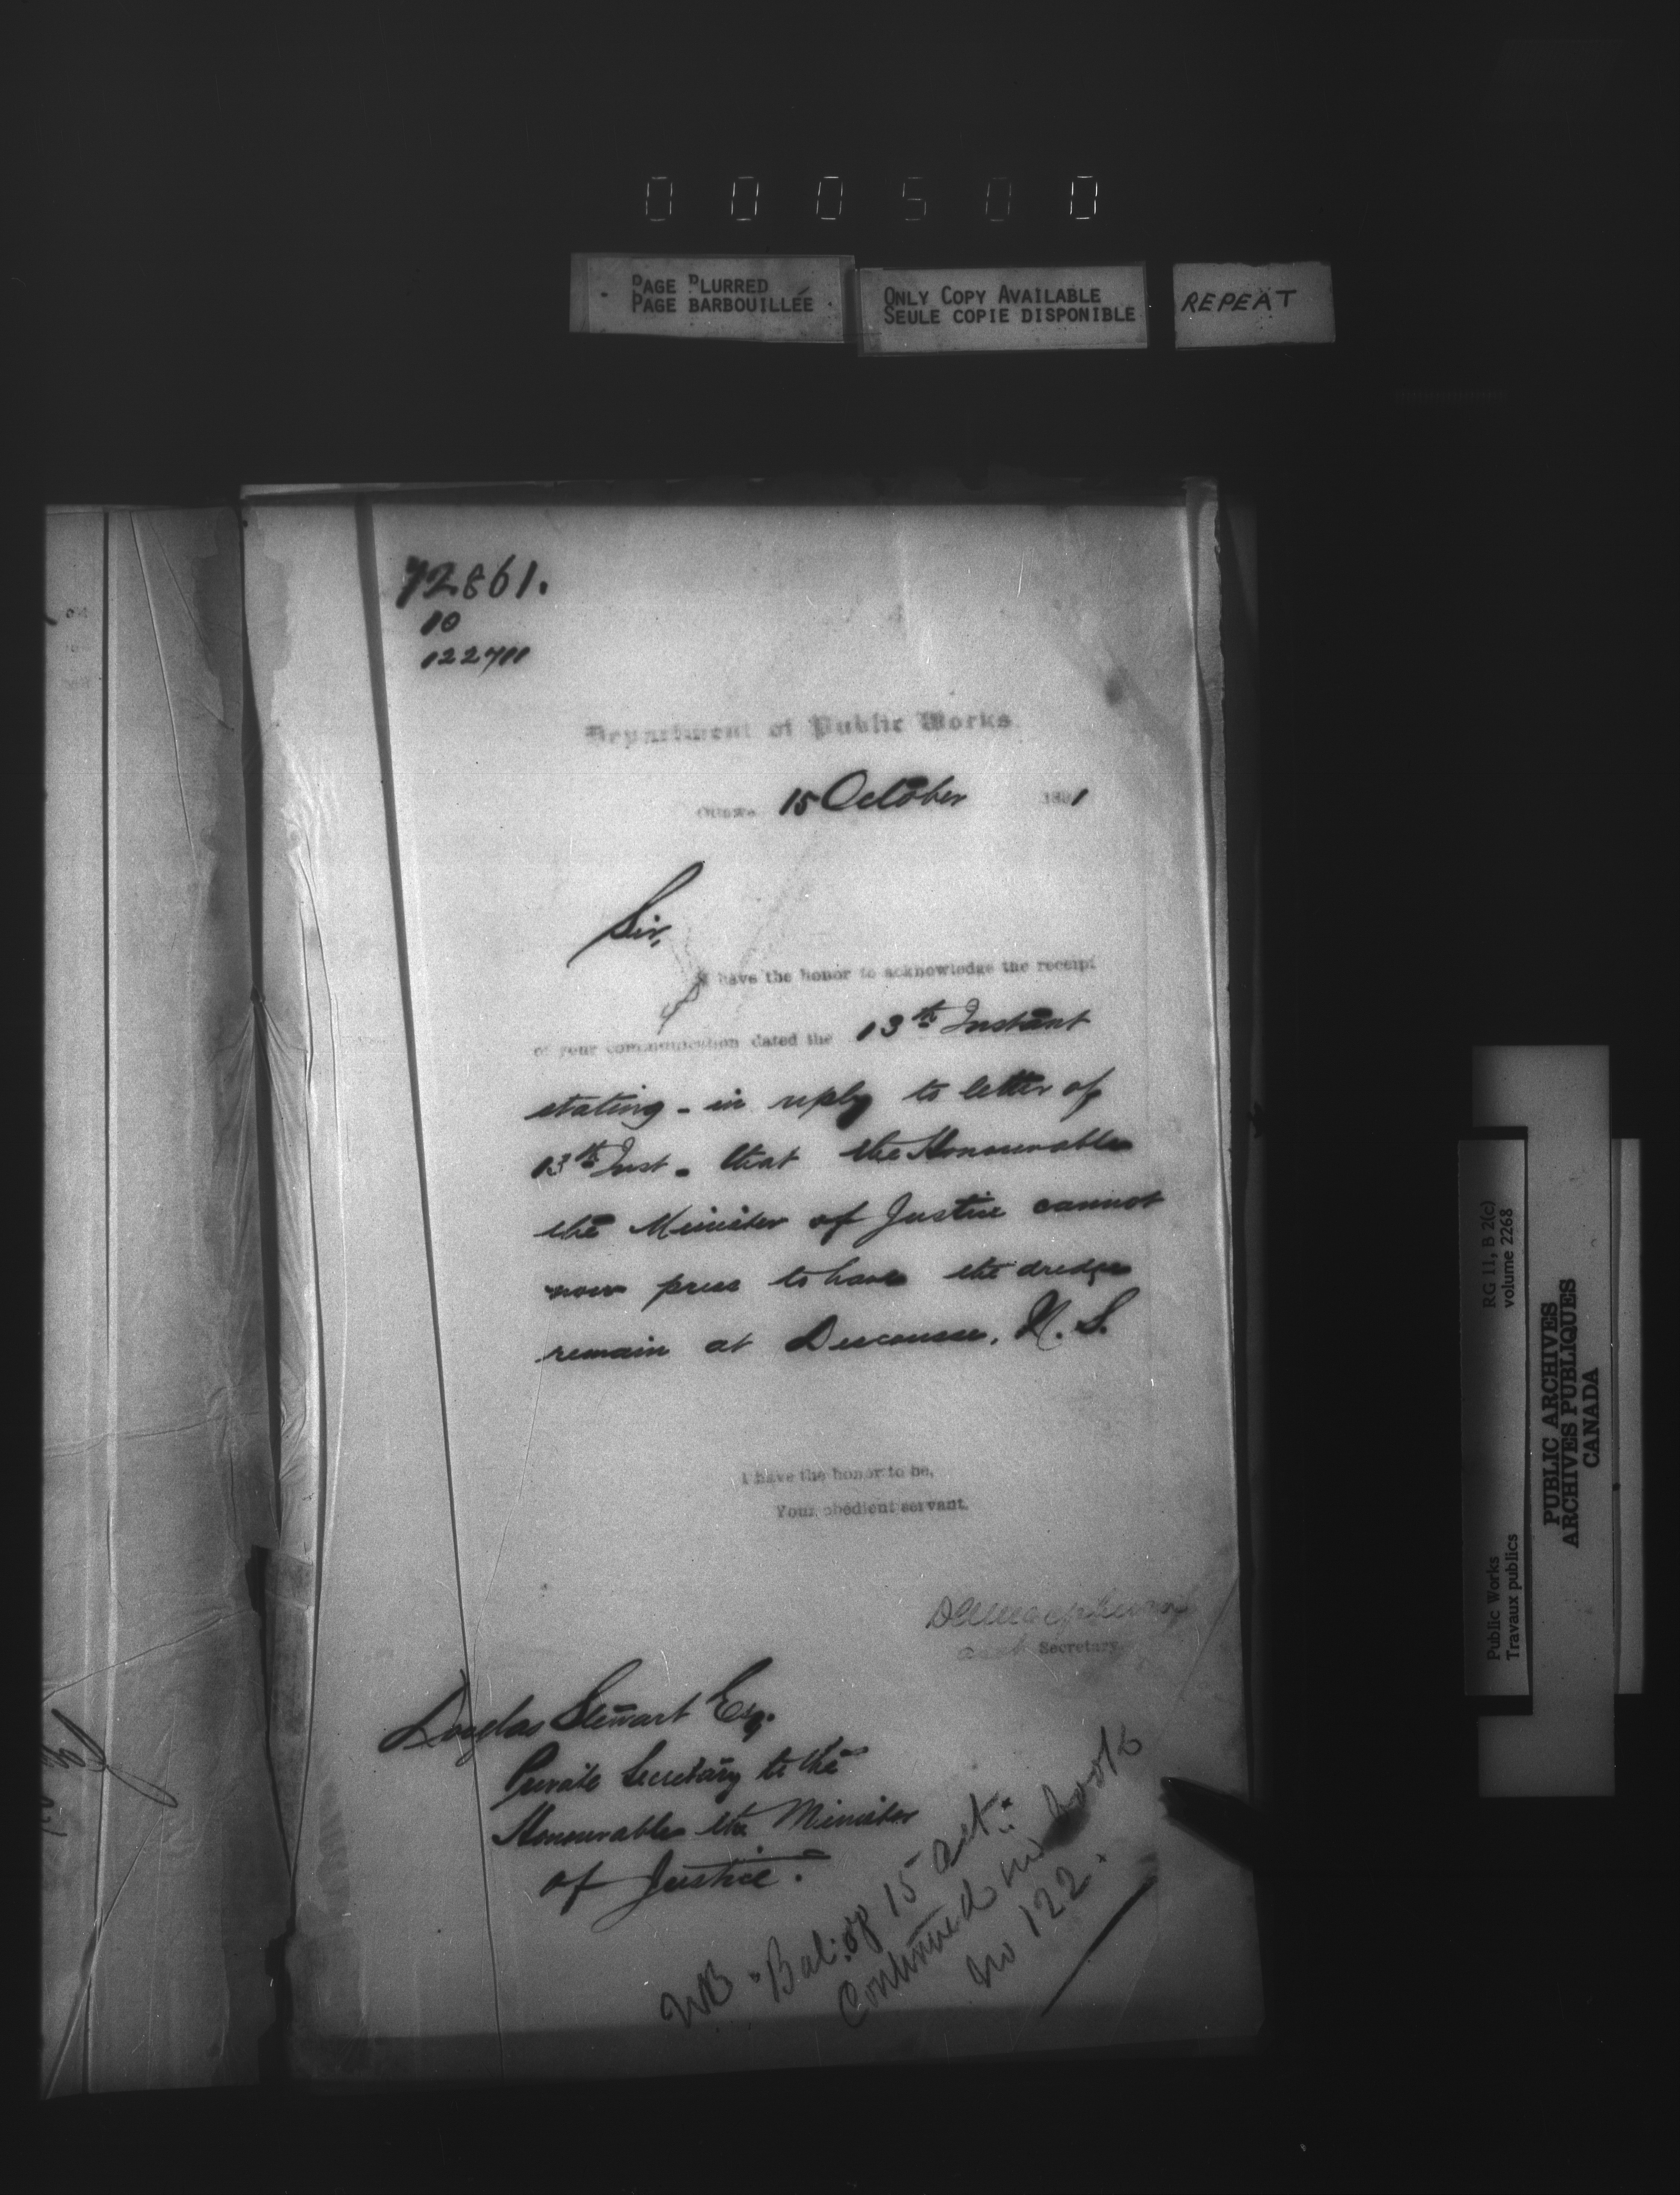 000500
PAGE BLURRED
PAGE BARBOUILLÉE
ONLY COPY AVAILABLE
SEULE COPIE DISPONIBLE
REPEAT
72861.
10
122711
Department of Public Works
Ottawa 15 October 1891
Sir,
I have the honor to acknowledge the receipt
of your communication dated the 13th Instant
stating - in reply to letter of
13th Inst. - that the Honourable
the Minister of Justice cannot
now press to have the dredge
remain at Descousse, N.S.
I have the honor to be,
Your obedient servant.
Secretary.
Douglas Stewart Esq.
Private Secretary to the
Honourable the Minister
of Justice.
NB - Bal: of 15 Oct:
Continued in book
No 122.
RG 11, B 2(c)
volume 2268
Public Works
Travaux publics
PUBLIC ARCHIVES
ARCHIVES PUBLIQUES
CANADA